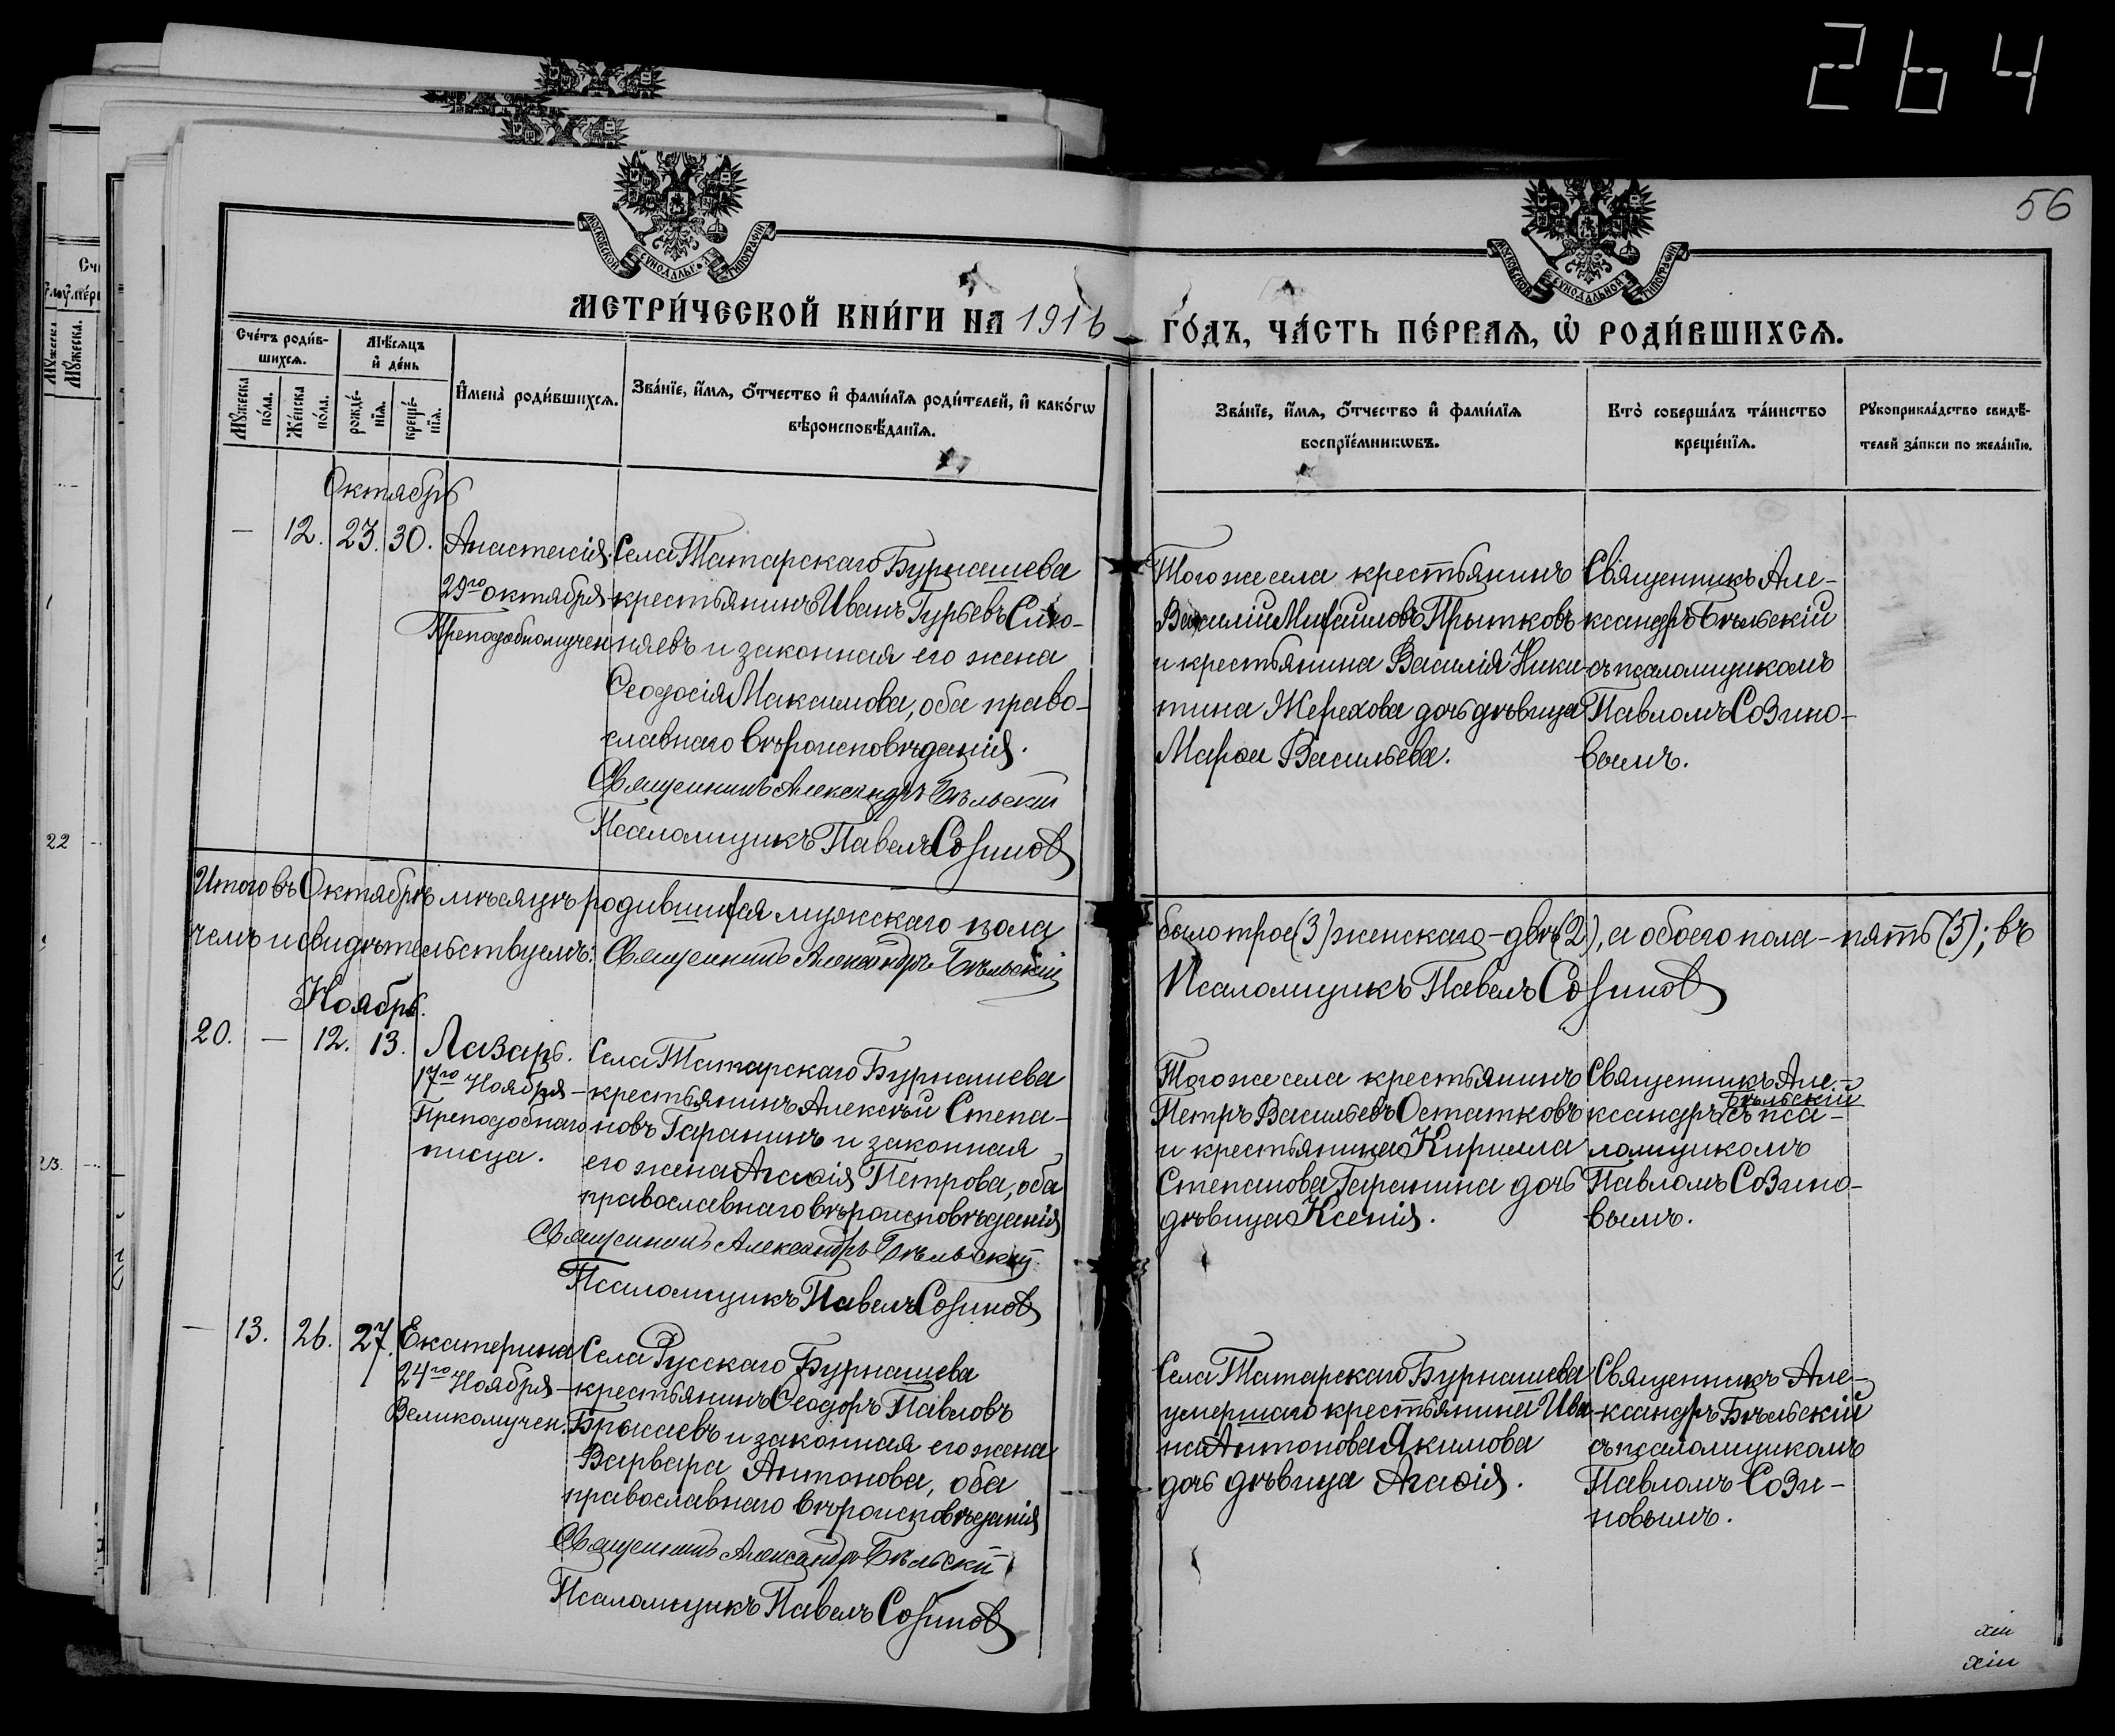 264
56
МОСКОВСКОЙ СѴНОДАЛЬНОЙ ТИПОГРАФІИ
МОСКОВСКОЙ СѴНОДАЛЬНОЙ ТИПОГРАФІИ
МЕТРИ́ЧЕСКОЙ КНИ́ГИ НА 1916
ГО́ДЪ, ЧА́СТЬ ПЕ́РВАЯ, Ѡ҆ РОДИ́ВШИХСЯ.
Сче́тъ роди́в-
шихся.
Мꙋ́жеска по́ла.
Же́нска по́ла.
Мѣ́сяцъ
и҆ де́нь
рожде́-
нїя.
креще́-
нїя.
И҆мена̀ роди́вшихся.
Зва́нїе, и҆́мя, ѻ҆́тчество и҆ фами́лїя роди́телей, и҆ како́гѡ
вѣроисповѣ́данїя.
Зва́нїе, и҆́мя, ѻ҆́тчество и҆ фами́лїя
воспрїе́мникѡвъ.
Кто̀ соверша́лъ та́инство
креще́нїя.
Рꙋкоприкла́дство свидѣ́-
телей за́писи по жела́нїю.
Октябрь
— 12. 23. 30. Анастасія.
29го Октября
Преподобномучен
Села Татарскаго Бурнашева
крестьянинъ Иванъ Гурьевъ Сино-
няевъ и законная его жена
Ѳеодосія Максимова, оба право-
славнаго вѣроисповѣданія.
Священникъ Александръ Бѣльскій
Псаломщикъ Павелъ Созинов
Тогоже села крестьянинъ
Василій Михаиловъ Прытковъ
и крестьянина Василія Ники-
тина Жерехова дочь дѣвица
Марѳа Васильева.
Священникъ Але-
ксандръ Бѣльскій
съ псаломщикомъ
Павломъ Созино-
вымъ.
Итого въ Октябрѣ мѣсяцѣ родившихся мужскаго пола
было трое (3) женскаго - двѣ (2), а обоего пола - пять (5); въ
чемъ и свидѣтельствуемъ: Священникъ Александръ Бѣльскій
Псаломщикъ Павелъ Созинов
Ноябрь.
20. — 12. 13. Лазарь.
17го Ноября -
Преподобнаго
писца.
Села Татарскаго Бурнашева
крестьянинъ Алексѣй Степа-
новъ Гаранинъ и законная
его жена Агаѳія Петрова, оба
православнаго вѣроисповѣданія
Священникъ Александръ Бѣльскій
Псаломщикъ Павелъ Созинов
Тогоже села крестьянинъ
Петръ Васильевъ Остатковъ
и крестьянина Кирилла
Степанова Гаранина дочь
дѣвица Ксенія.
Священникъ Але-
Бѣльскій
ксандръ съ пса-
ломщикомъ
Павломъ Созино-
вымъ.
— 13. 26. 27. Екатерина
24го Ноября -
Великомучен.
Села Русскаго Бурнашева
крестьянинъ Ѳеодоръ Павловъ
Брысаевъ и законная его жена
Варвара Антонова, оба
православнаго вѣроисповѣданія
Священникъ Александръ Бѣльскій
Псаломщикъ Павелъ Созинов
Села Татарскаго Бурнашева
умершаго крестьянина Ива-
на Антонова Якимова
дочь дѣвица Агаѳія.
Священникъ Але-
ксандръ Бѣльскій
съ псаломщикомъ
Павломъ Сози-
новымъ.
22
23.